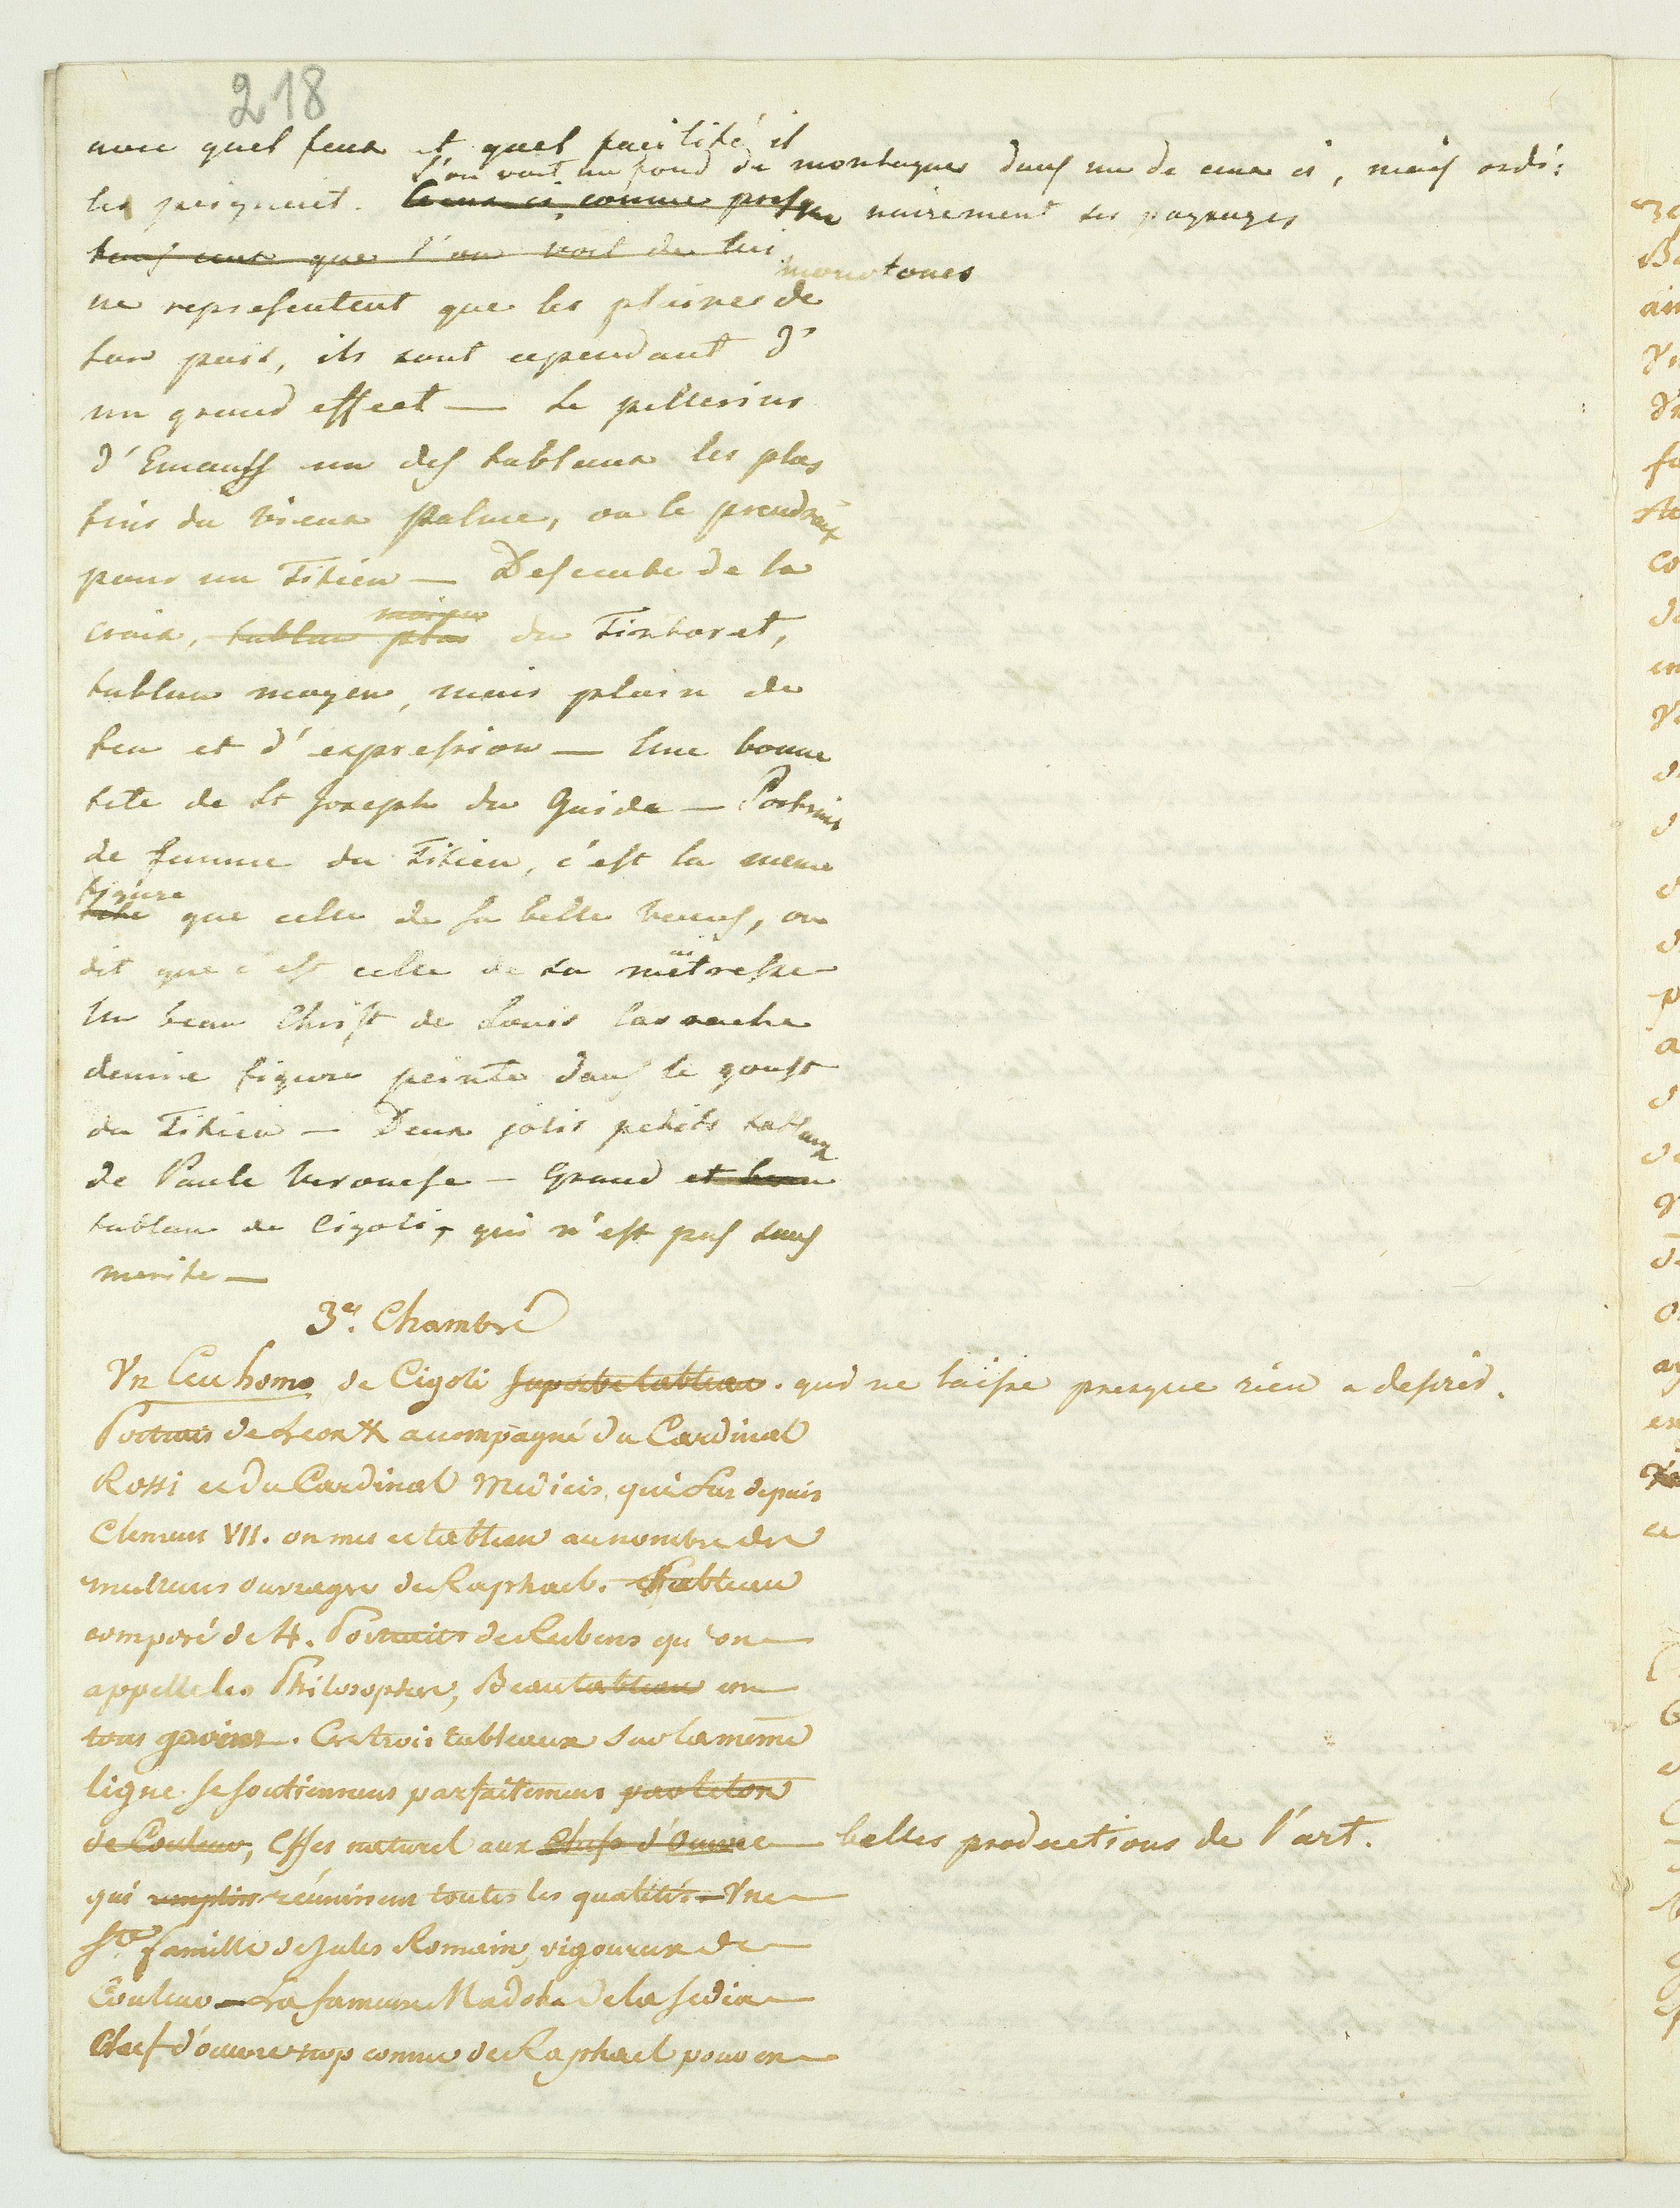 218
avec quel feux et quel facilité il
l'on voit un fond de montagnes dans un de ceux ci, mais ordi:
les peignoit. Ceux ci, comme presque nairement ses paysages
tous ceux que l'on voit de lui
monotones
ne representent que les plaines de
son pais, ils sont cependant d'
un grand effect — Le pellerins
d'Emauss un des tableaux les plus
finis du vieux Palme, on le prendroit
pour un Titien — Descente de la
moyen
croix, tableau plus du Tintoret,
tableau moyen, mais plein de
feu et d'expression — Une bonne
tete de St Joseph du Guide — Portrait
de femme du Titien, c'est la meme
figure
tete que celle de sa belle Venus, on
dit que c'est celle de sa maitresse
Un beau Christ de Louis Carrache
demie figure peinte dans le goust
du Titien — Deux jolis petits tableaux
de Paule Veronese — Grand et beau
tableau de Cigoli, qui n'est pas sans
merite —
3e. Chambre
Un Ecce homo de Cigoli superbe tableau. qui ne laisse presque rien a desirer.
Portrait de Leon X acompagné du Cardinal
Rossi et du Cardinal Medicis, qui fut depuis
Clement VII. on met ce tableau au nombre des
meilleurs ouvrages de Raphael. Tableau
composé de 4. Portraits de Rubens qu'on
appelle les Philosophes, Beau tableau en
tous genres. Ces trois tableaux sur la même
ligne se soutiennent parfaitement par le ton
de Couleur, Effet naturel aux Chefs d'Ouvre belles productions de l'art.
qui réunissent toutes les qualités — Une
Ste famille de Jules Romain, vigoureux de
Couleur — La fameuse Madona de la Sedia
Chef d'ouvre trop connu de Raphael pour en